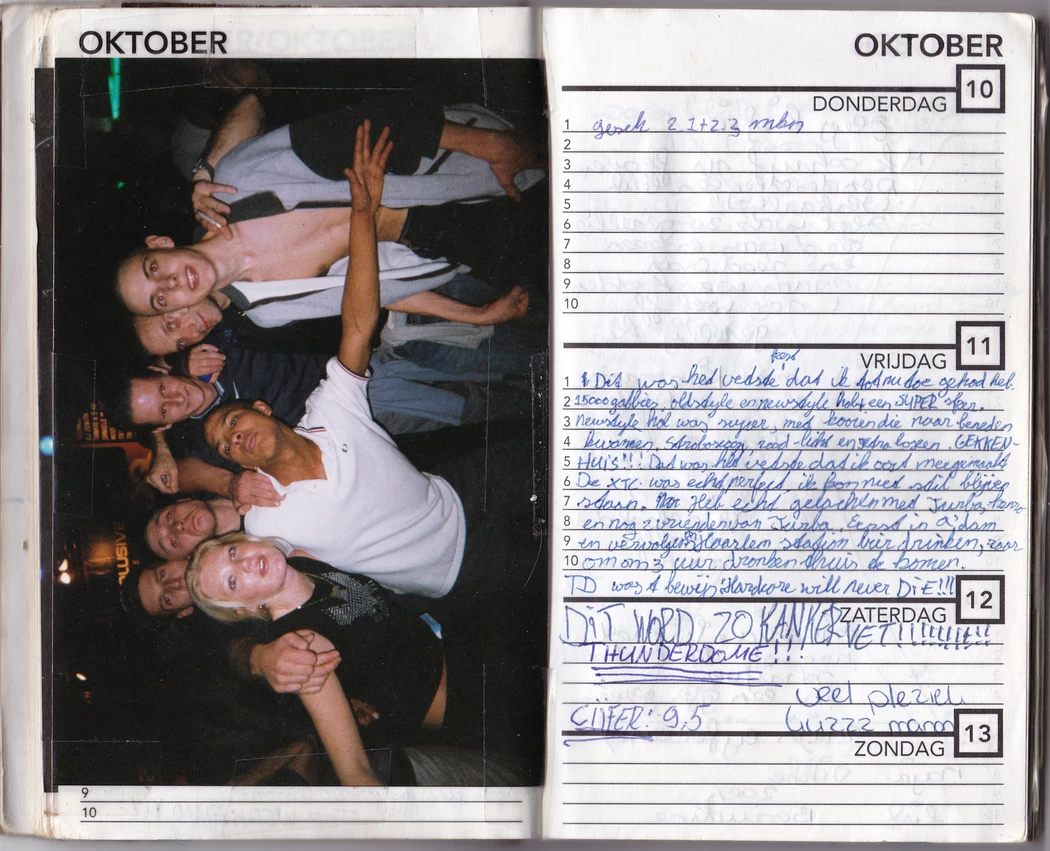 OKTOBER
9
10
OKTOBER
10
DONDERDAG
1 gesch 2.1+2.3 mkn
2
3
4
5
6
7
8
9
10
11
VRIJDAG
feest
1 Dit was het vetste dat ik tot nu toe gehad heb.
2 15000 gabbers, oldstyle en newstyle hal, een SUPER sfeer.
3 Newstyle hal was super, met die naar beneden
4 kwamen, stroboscoop, rood-licht en extra boxen. GEKKEN-
5 HUIS!!! Dat was het vetste dat ik ooit meegemaakt
6 De XTC was echt perfect, ik kon niet stil blijven
7 staan. Heb echt gelachen met Jurba,
8 en nog 2 vrienden van Jurba. Eerst in A'dam
9 en vervolgens Haarlem stadion bier drinken,
10 om om 3 uur dronken thuis te komen.
TD was 't bewijs: Hardcore will never DiE!!!
12
ZATERDAG
DiT WORD ZO KANKERVET!!!!!!!!!!
THUNDERDOME!!!
veel plezier
CIJFER: 9,5
kuzzz mam
13
ZONDAG